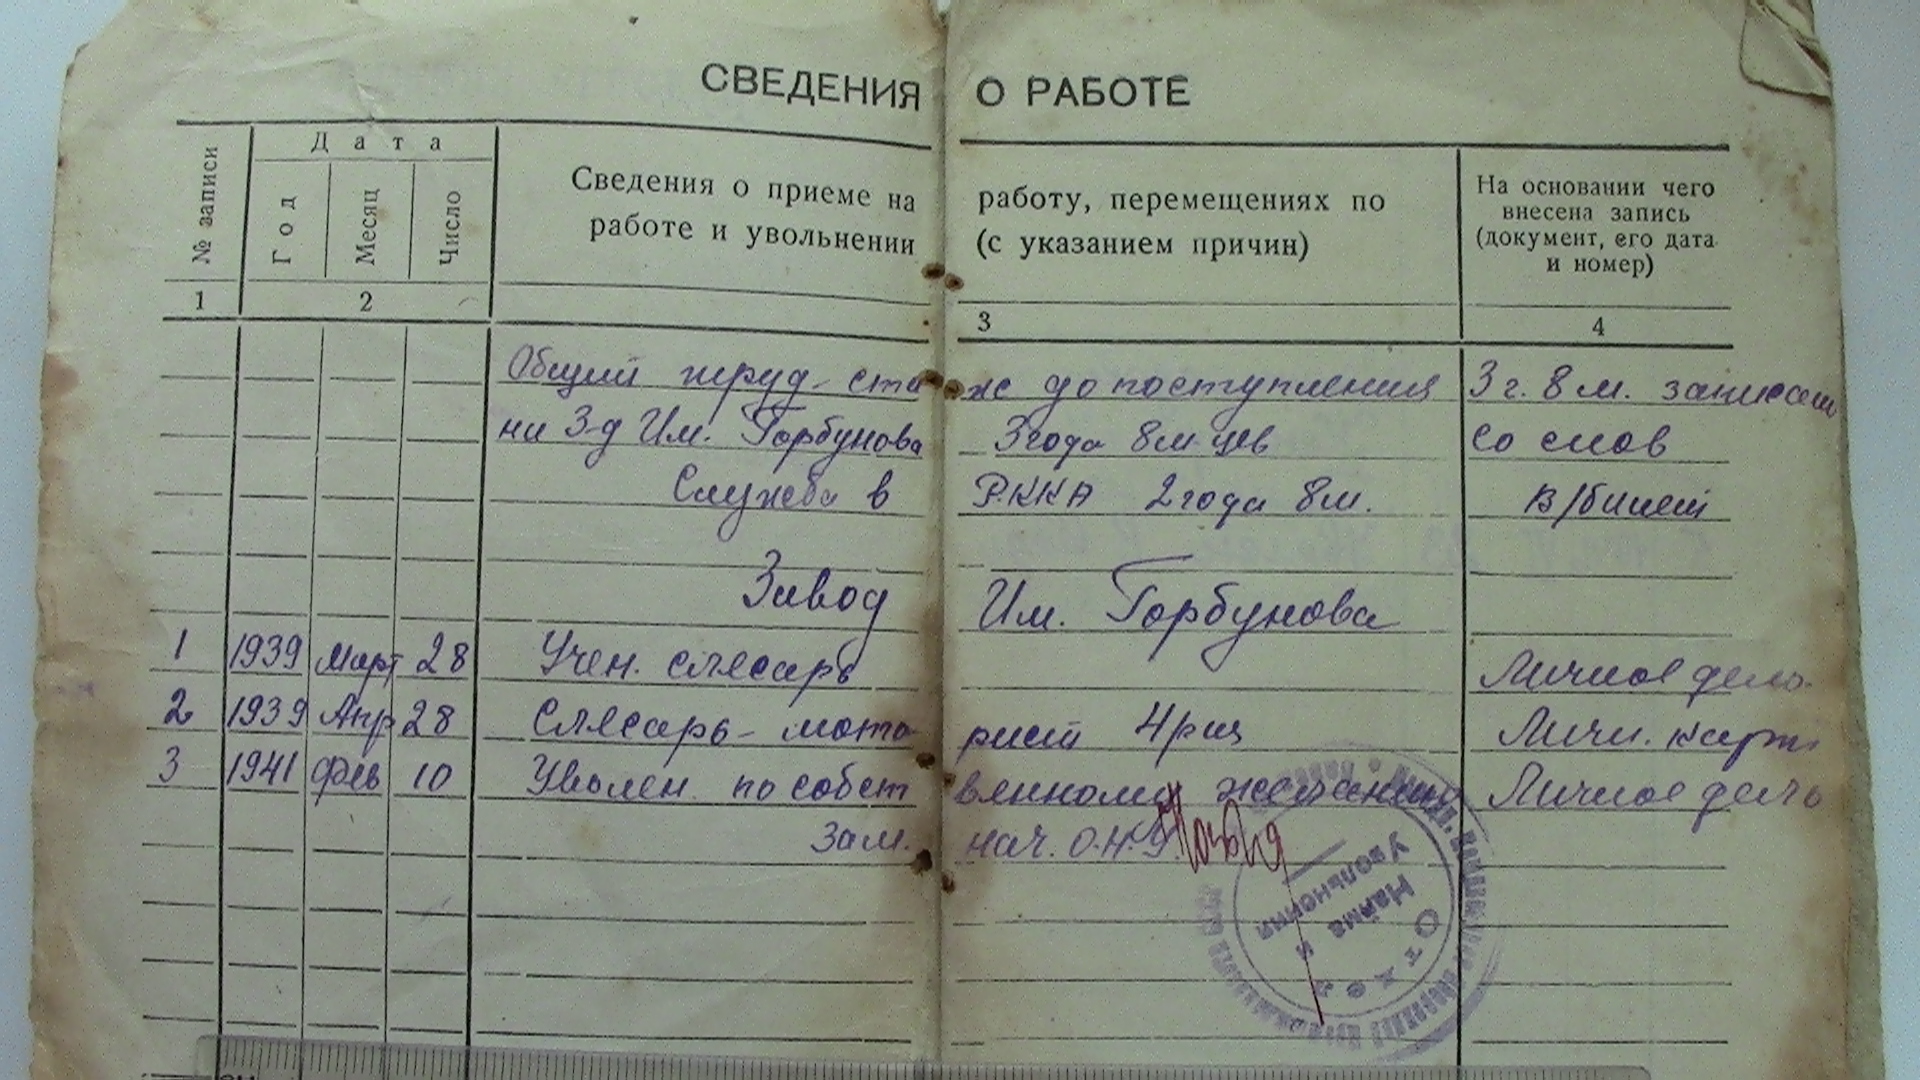 СВЕДЕНИЯ О РАБОТЕ
№ записи
Дата
Год
Месяц
Число
Сведения о приеме на работу, перемещениях по
работе и увольнении (с указанием причин)
На основании чего
внесена запись
(документ, его дата
и номер)
1 2 3 4
Общий труд-стаж до поступления 3 г. 8 м. записан
на З-д Им. Горбунова 3 года 8 м-цев со слов
Служба в РККА 2 года 8 м. в/билет
Завод Им. Горбунова
1 1939 Март 28 Учен. слесарь Личное дело
2 1939 Апр 28 Слесарь-моторист 4 раз Личн. карт
3 1941 Фев 10 Уволен по собственному желанию Личное дело
Зам. нач. О.Н.У.
Отдел
Найма и
Увольнения